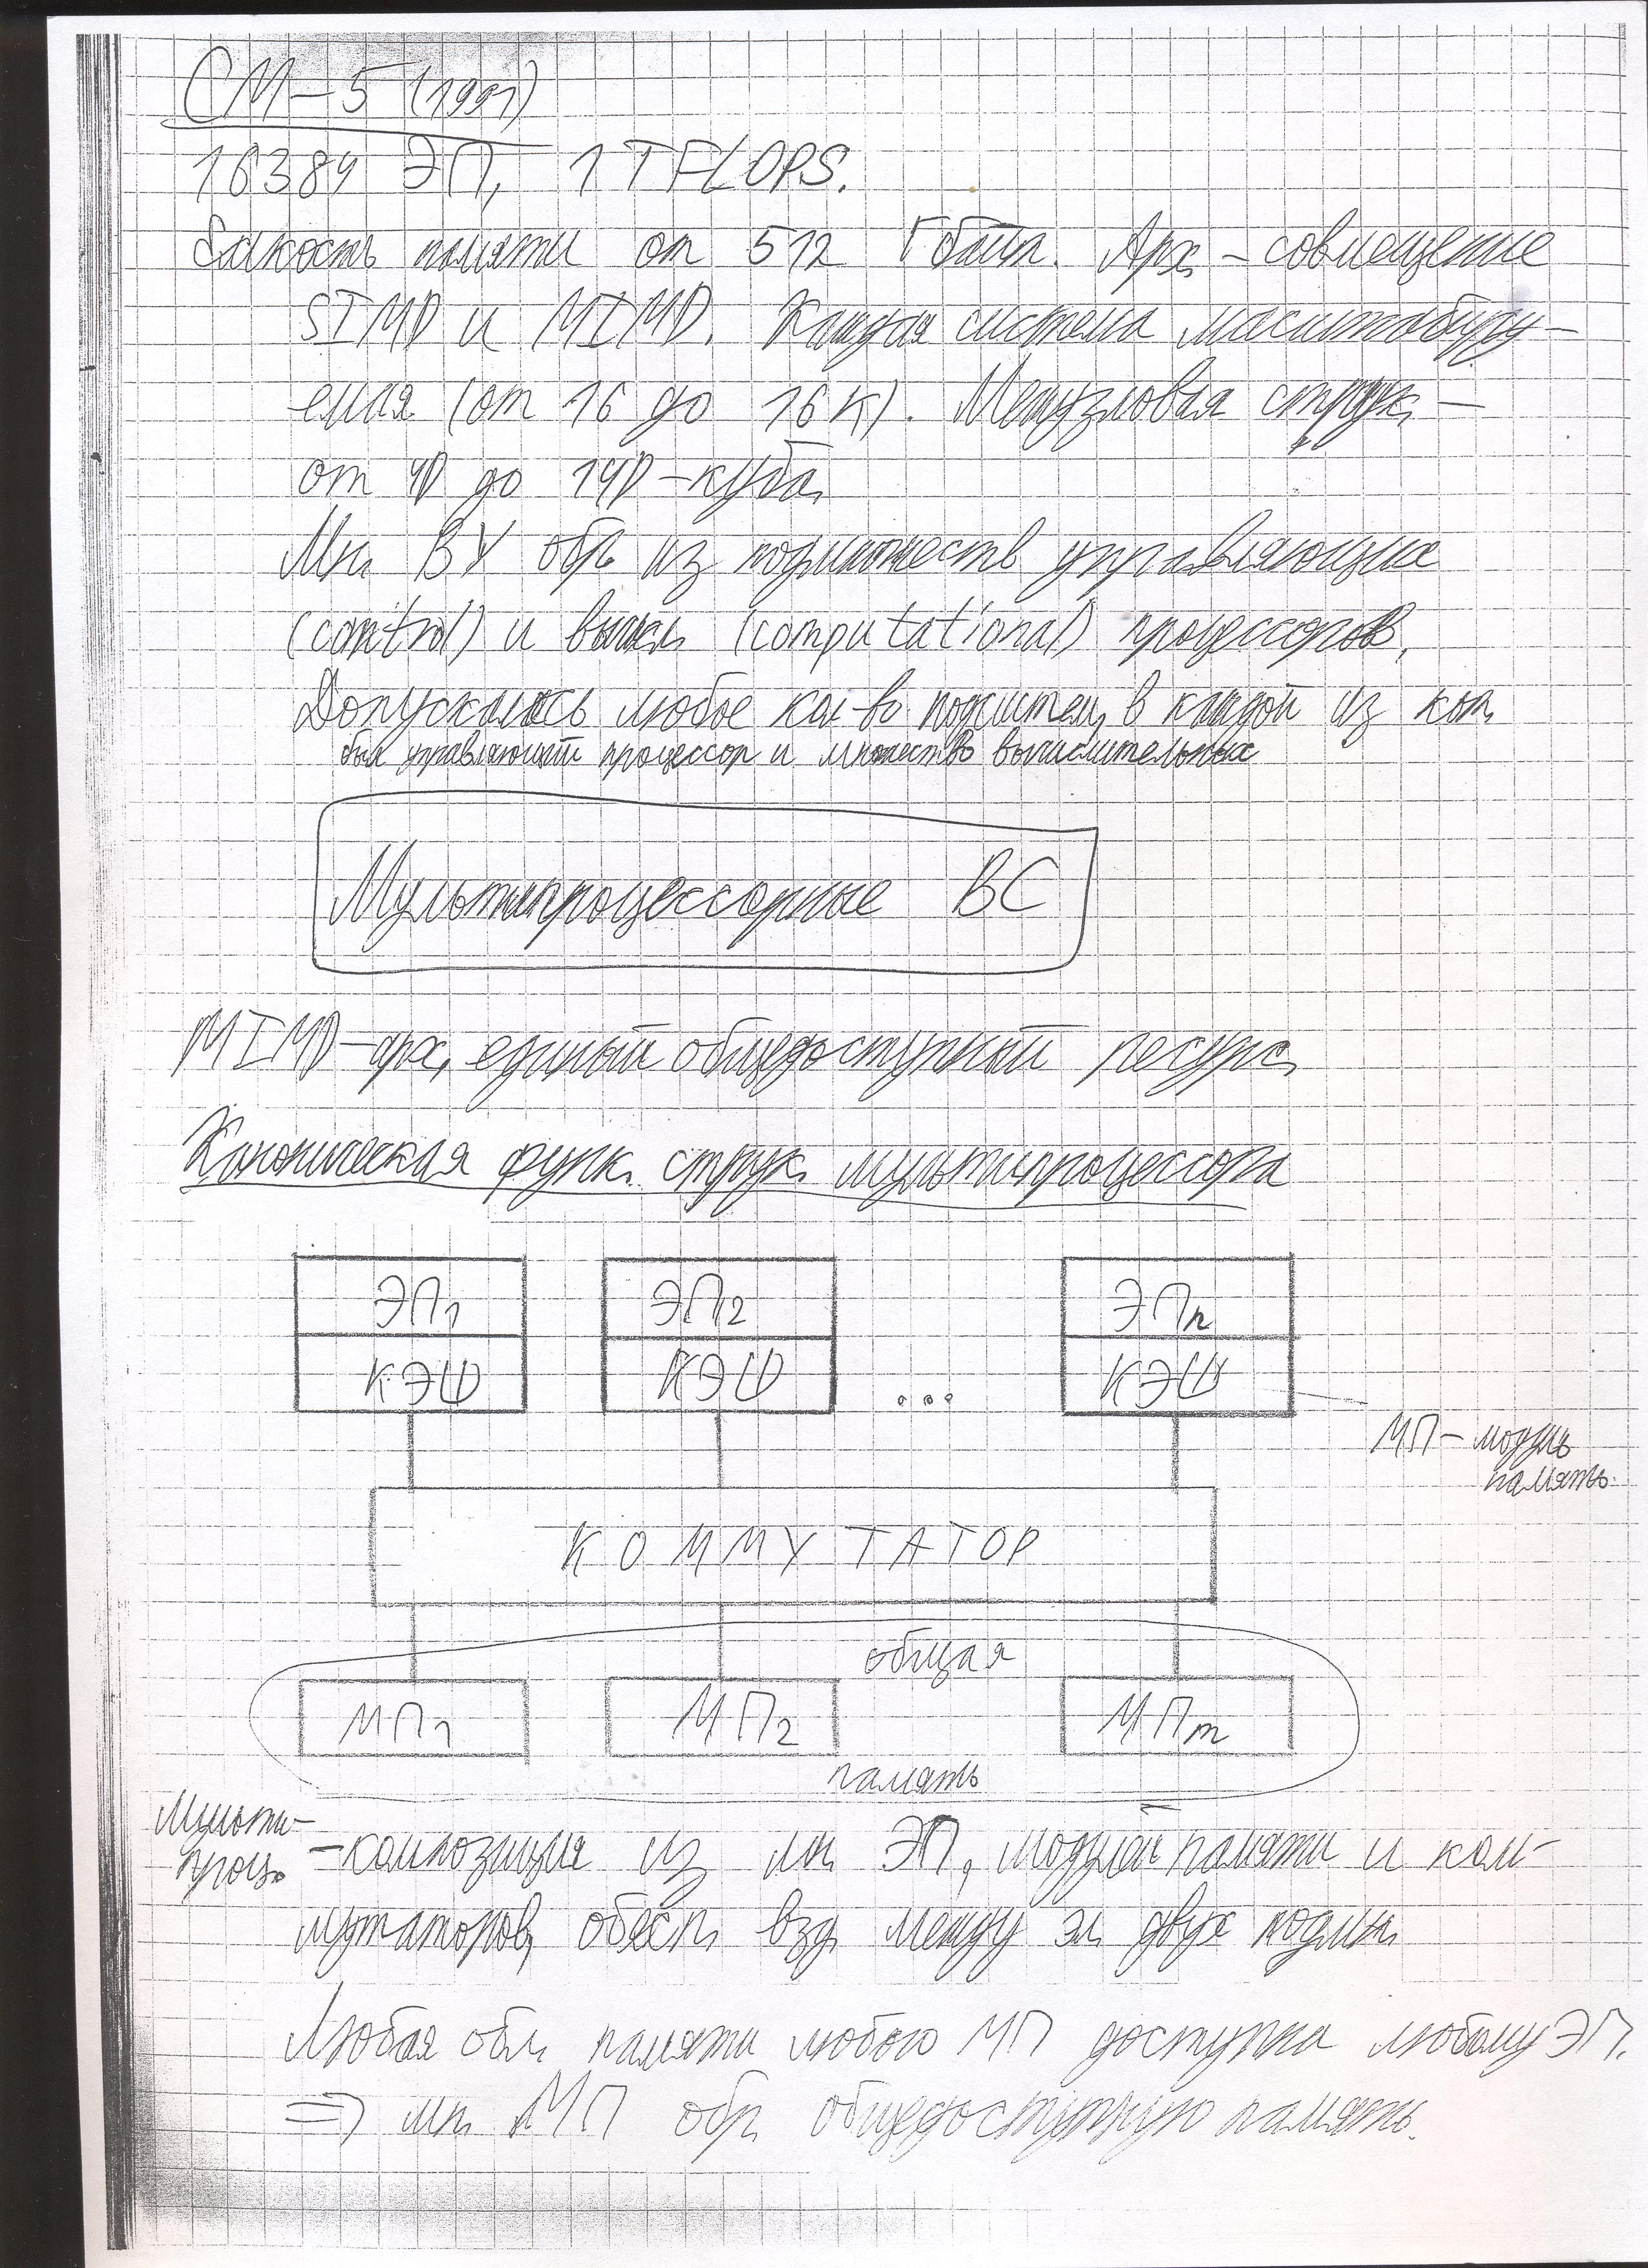 СМ-5 (1991)
16384 ЭП, 1 TFLOPS.
Ёмкость памяти от 512 Гбайт. Арх. - совмещение
SIMD и MIMD. Каждая система масштабиру-
емая (от 16 до 16К). Межузловая струк. -
от 4D до 14D-куба.
Мн. ВУ обр. из подмножеств управляющих
(control) и вычисл. (computational) процессоров.
Допускалось любое кол-во подсистем, в каждой из кот.
был управляющий процессор и множество вычислительных
Мультипроцессорные ВС
MIMD-арх, единый общедоступный ресурс.
Каноническая функ. струк. мультипроцессора
ЭП1 ЭП2 ЭПn
КЭШ КЭШ ... КЭШ
МП - модуль
память.
КОММУТАТОР
общая
МП1 МП2 МПm
память
Мульти-
проц. - композиция из мн. ЭП, модулей памяти и ком-
мутаторов, обесп. взд. между эл. двух подмн.
Любая обл. памяти любого МП доступна любому ЭП.
=> мн. МП обр. общедоступную память.